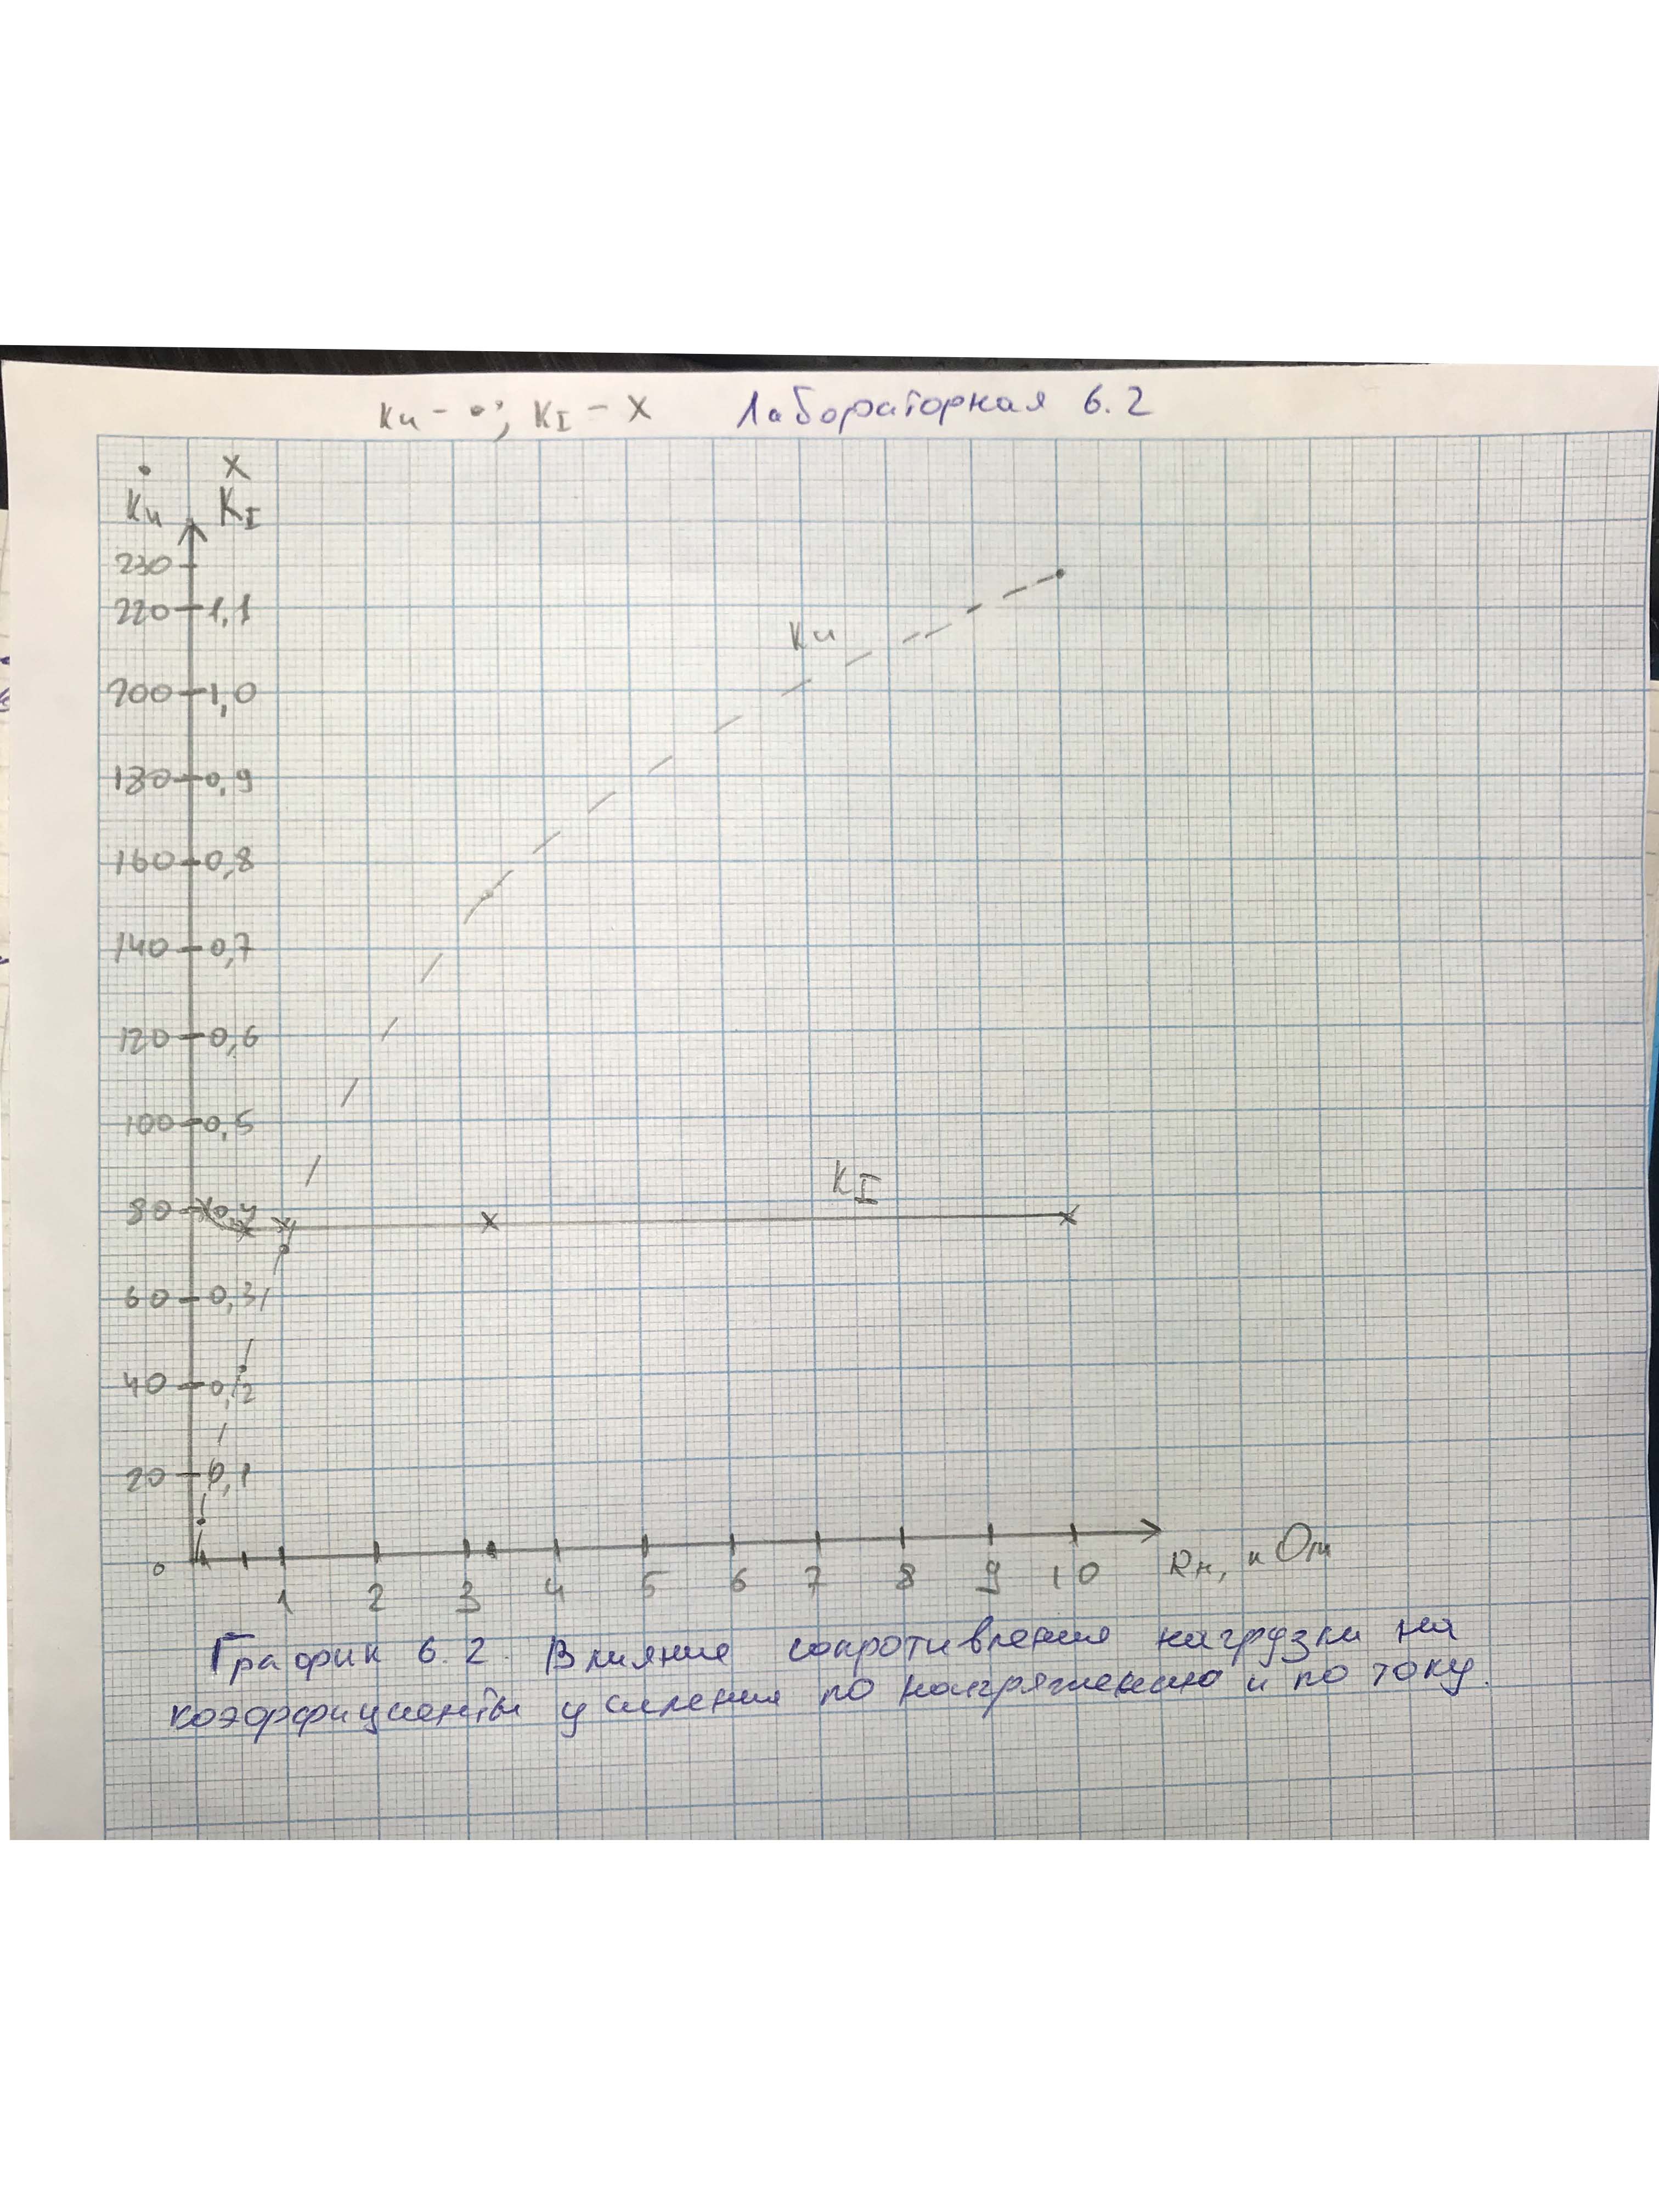 Ku - •; KI - X Лабораторная 6.2
• X
Ku KI
230
220 1,1
200 1,0
180 0,9
160 0,8
140 0,7
120 0,6
100 0,5
80 0,4
60 0,3
40 0,2
20 0,1
0
Ku
KI
1 2 3 4 5 6 7 8 9 10 Rн, кОм
График 6.2. Влияние сопротивления нагрузки на
коэффициенты усиления по напряжению и по току.